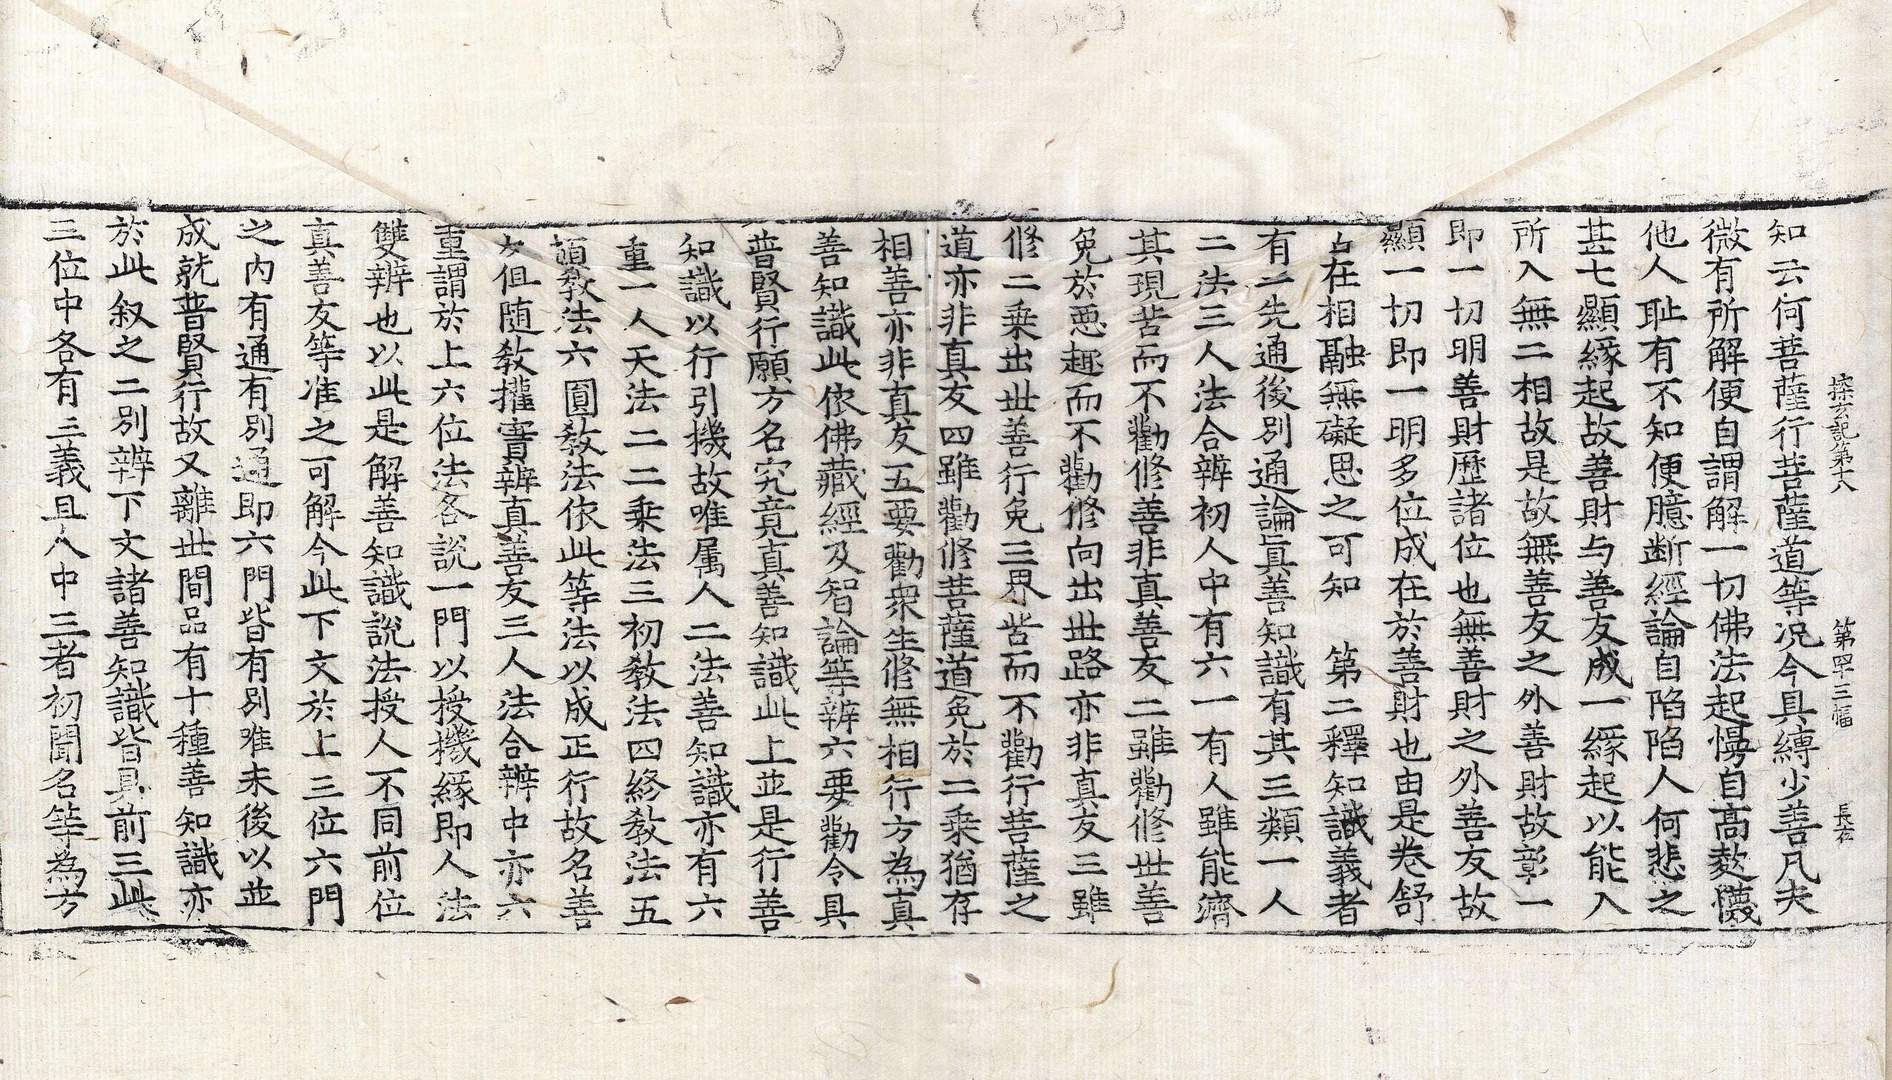 探玄記第十八　第四十三幅　長右
知云何菩薩行菩薩道等况今具縛少善凡夫
微有所解便自謂解一切佛法起慢自高欺懱
他人耻有不知便臆断經論自陷陷人何悲之
甚七顯緣起故善財与善友成一緣起以能入
所入無二相故是故無善友之外善財故彰一
即一切明善財歷諸位也無善財之外善友故
顯一切即一明多位成在於善財也由是卷舒
自在相融無礙思之可知　第二釋知識義者
有二先通後別通論真善知識有其三類一人
二法三人法合辨初人中有六一有人雖能濟
其現苦而不勸修善非真善友二雖勸修世善
免於惡趣而不勸修向出世路亦非真友三雖
修二乘出世善行免三界苦而不勸行菩薩之
道亦非真友四雖勸修菩薩道免於二乘猶存
相善亦非真友五要勸衆生修無相行方為真
善知識此依佛藏經及智論等辨六要勸令具
普賢行願方名究竟真善知識此上並是行善
知識以行引機故唯属人二法善知識亦有六
重一人天法二二乘法三初敎法四終敎法五
頓敎法六圓敎法依此等法以成正行故名善
友但随敎權實辨真善友三人法合辨中亦六
重謂於上六位法各說一門以授機緣即人法
雙辨也以此是解善知識說法授人不同前位
真善友等准之可解今此下文於上三位六門
之內有通有別通即六門皆有別唯末後以並
成就普賢行故又離世間品有十種善知識亦
於此叙之二別辨下文諸善知識皆具前三此
三位中各有三義且人中三者初聞名等為方